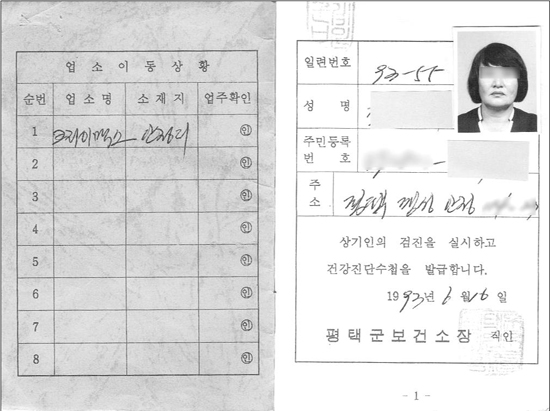 업소이동상황
순번 업소명 소재지 업주확인
1 크라이막스 안정리 인
2 인
3 인
4 인
5 인
6 인
7 인
8 인
일련번호 93-55
성명
주민등록번호 -
주소 평택 팽성 안정
상기인의 검진을 실시하고
건강진단수첩을 발급합니다.
1993년 6월 16일
평택군보건소장 직인
- 1 -